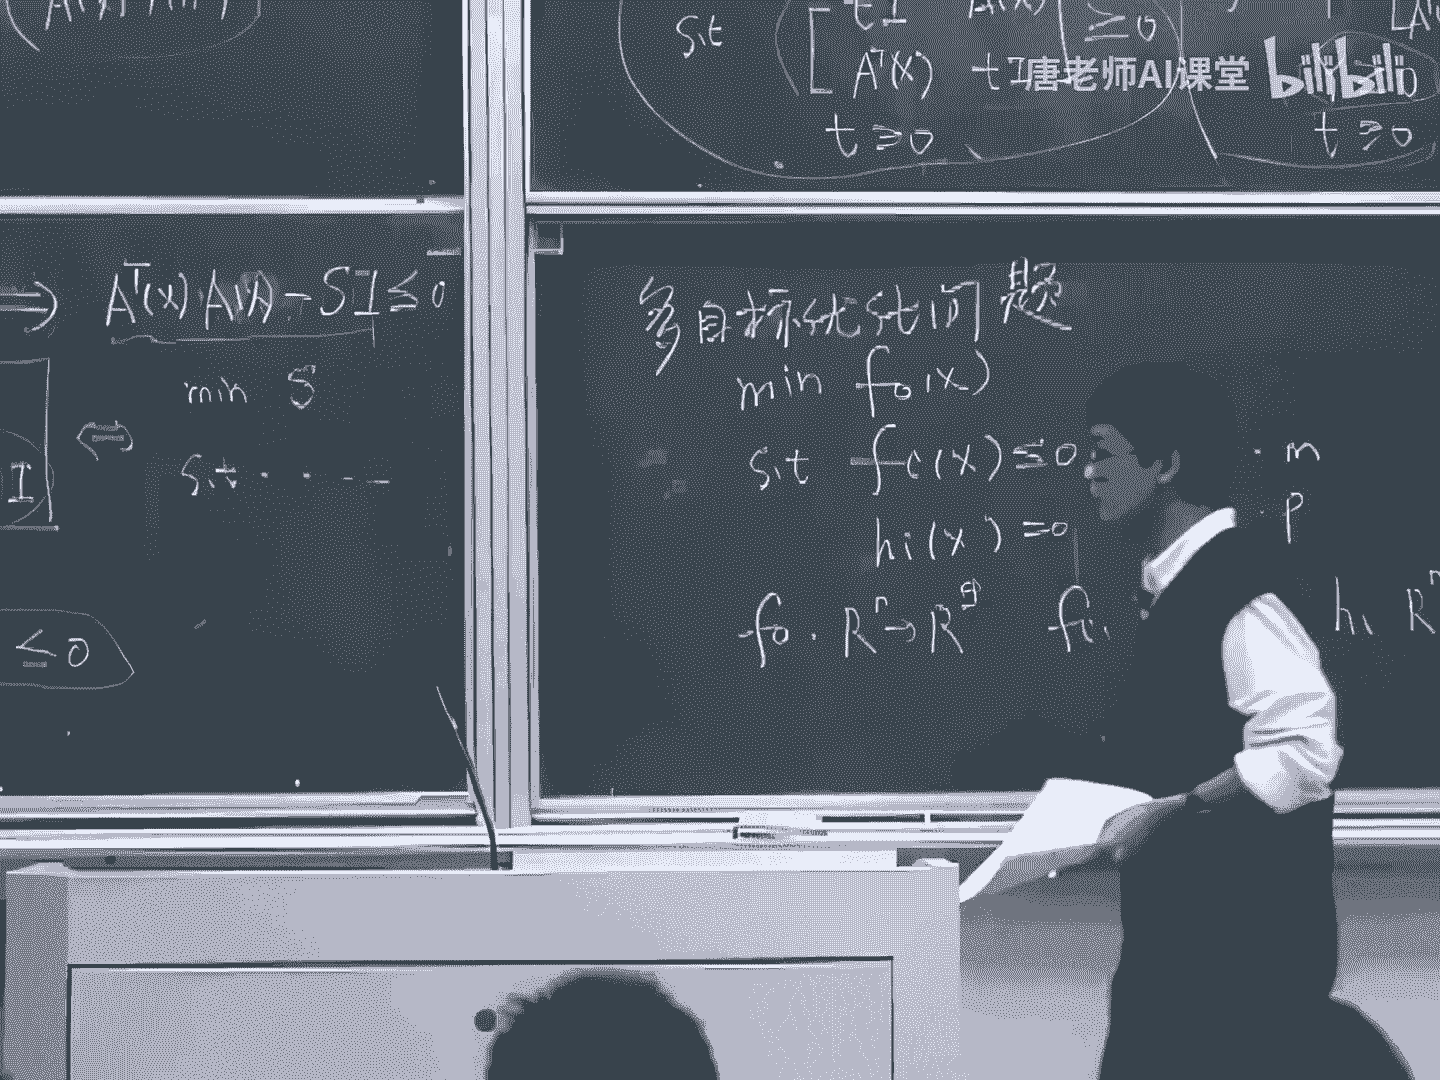 s.t [ tI A(x)
Aᵀ(x) tI ] ≥ 0
t ≥ 0
t ≥ 0
唐老师AI课堂 bilibili
⇒ Aᵀ(x) A(x) - SI ≤ 0
min S
⇔ s.t . . - -
I
≤ 0
多目标优优问题
min f₀(x)
s.t fi(x) ≤ 0 · m
hi(x) = 0 · p
f₀ . Rⁿ → R^q fi. hi Rⁿ